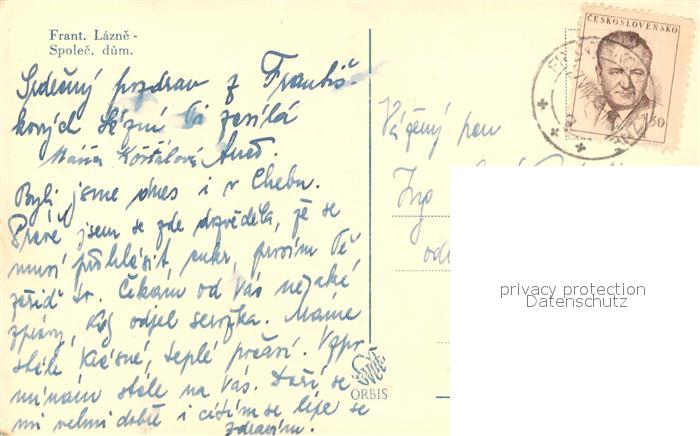 Frant. Lázně -
Společ. dům.
Srdečný pozdrav z Františ-
kových Lázní Ti zasílá
Máňa
Byli jsme dnes i v Chebu.
Právě jsem se zde dozvěděla, že se
musí přihlásit cukr, prosím Tě
zařiď to. Čekám od Vás nejaké
zprávy, kdy odjel Máme
stále krásné, teplé počasí. Vzpo-
mínám stále na Vás. Daří se
mi velmi dobře i cítím se lépe se
zdravím.
ORBIS
ČESKOSLOVENSKO
1,50
Vážený pan
Ing
privacy protection
Datenschutz